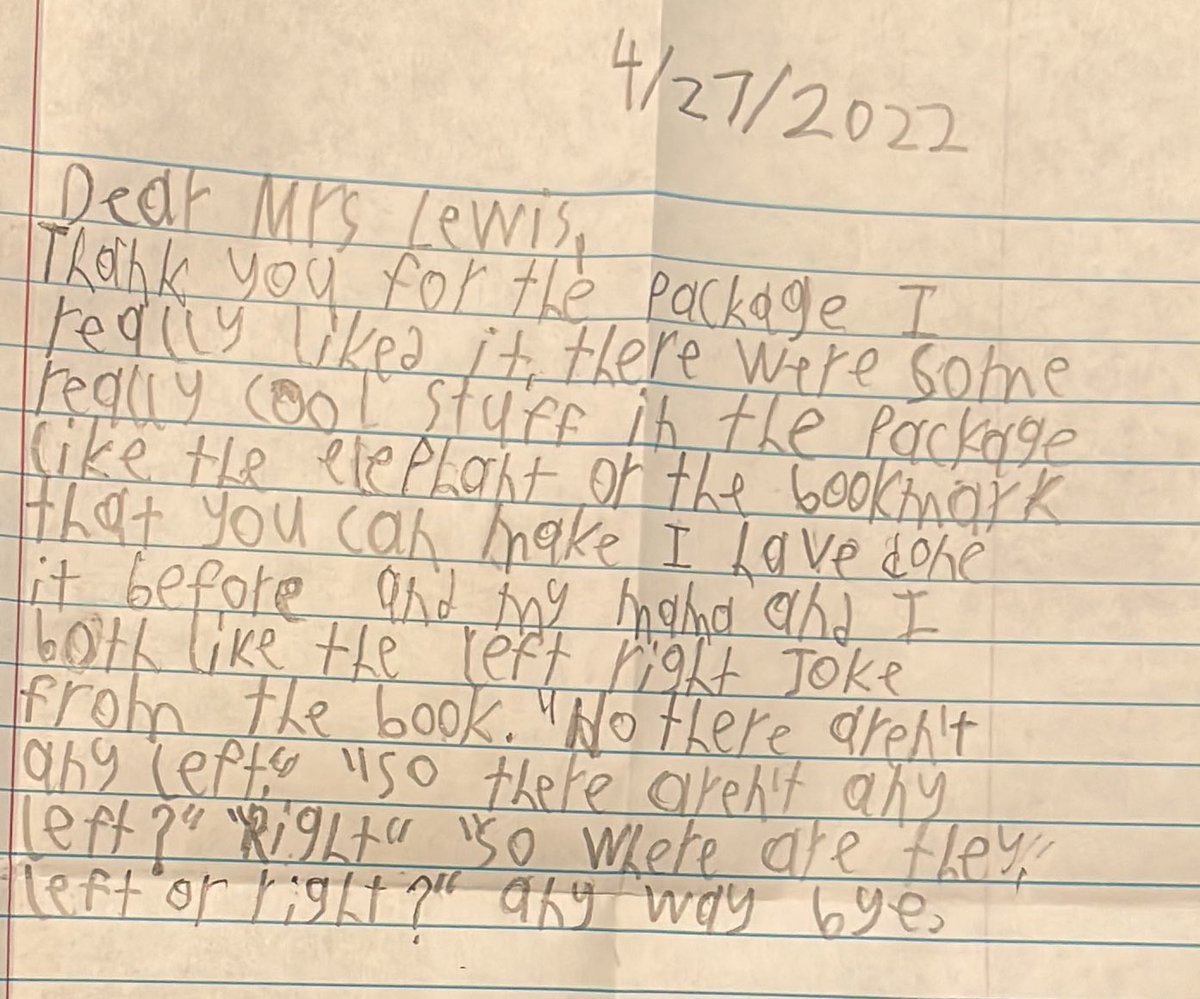 4/27/2022
Dear Mrs Lewis,
Thank you for the package I
really liked it, there were some
really cool stuff in the package
like the elephant or the bookmark
that you can make I have done
it before and my mama and I
both like the left right Joke
from the book. "No there aren't
any left." "so there aren't any
left?" "Right" "so where are they,"
left or right?" any way bye.